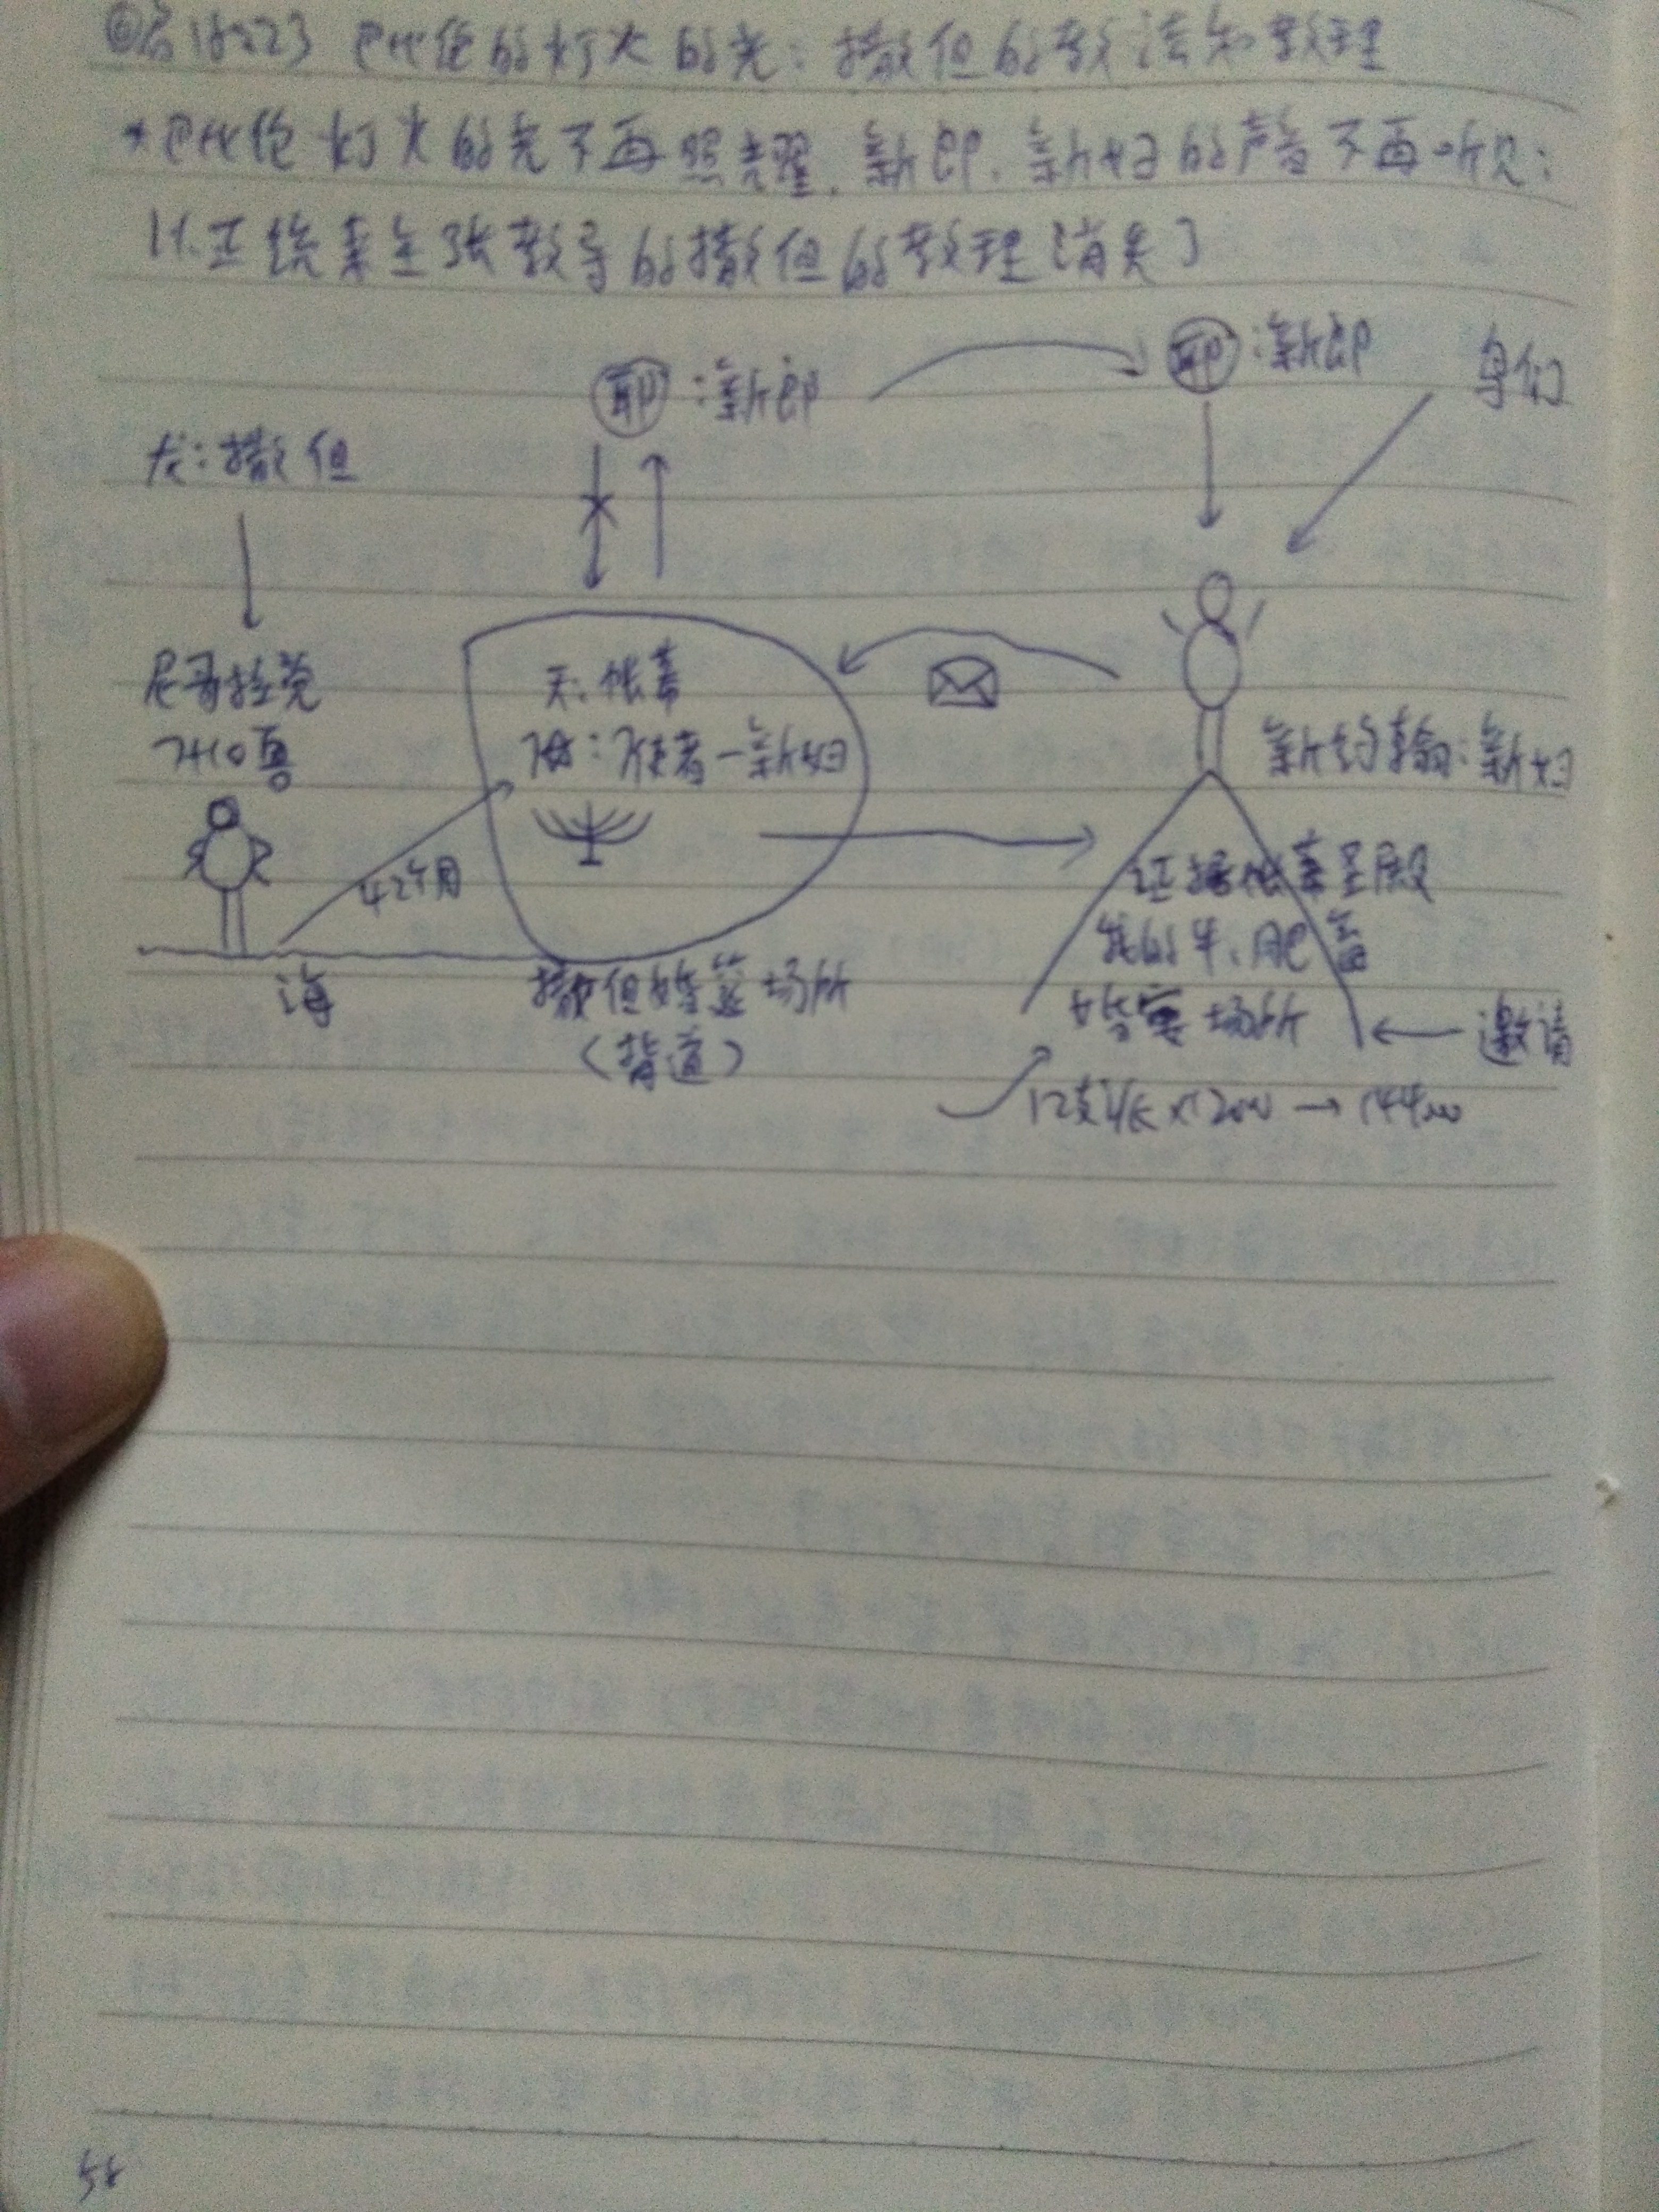 ⑥启18:23 巴比伦的灯火的光:撒但的教法和教理
*巴比伦灯火的光不再照耀,新郎、新妇的声音不再听见:
以正统来主张教导的撒但的教理消失了
耶:新郎
耶:新郎
鸟们
龙:撒但
尼哥拉党
7头10角
天:帐幕
使者-新妇
新约
:新妇
42个月
海
撒但婚筵场所
(背道)
证据帐幕圣殿
我的牛、肥畜
婚宴场所
邀请
12支派×12000→144000